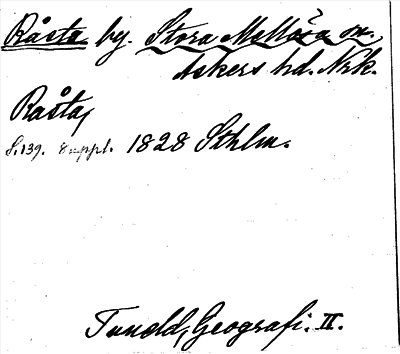 Råsta by. Stora Mellösa sn.,
Askers hd. Nrk.
Råsta,
S. 139. 8 uppl. 1828 Sthlm.
Tuneld, Geografi. II.